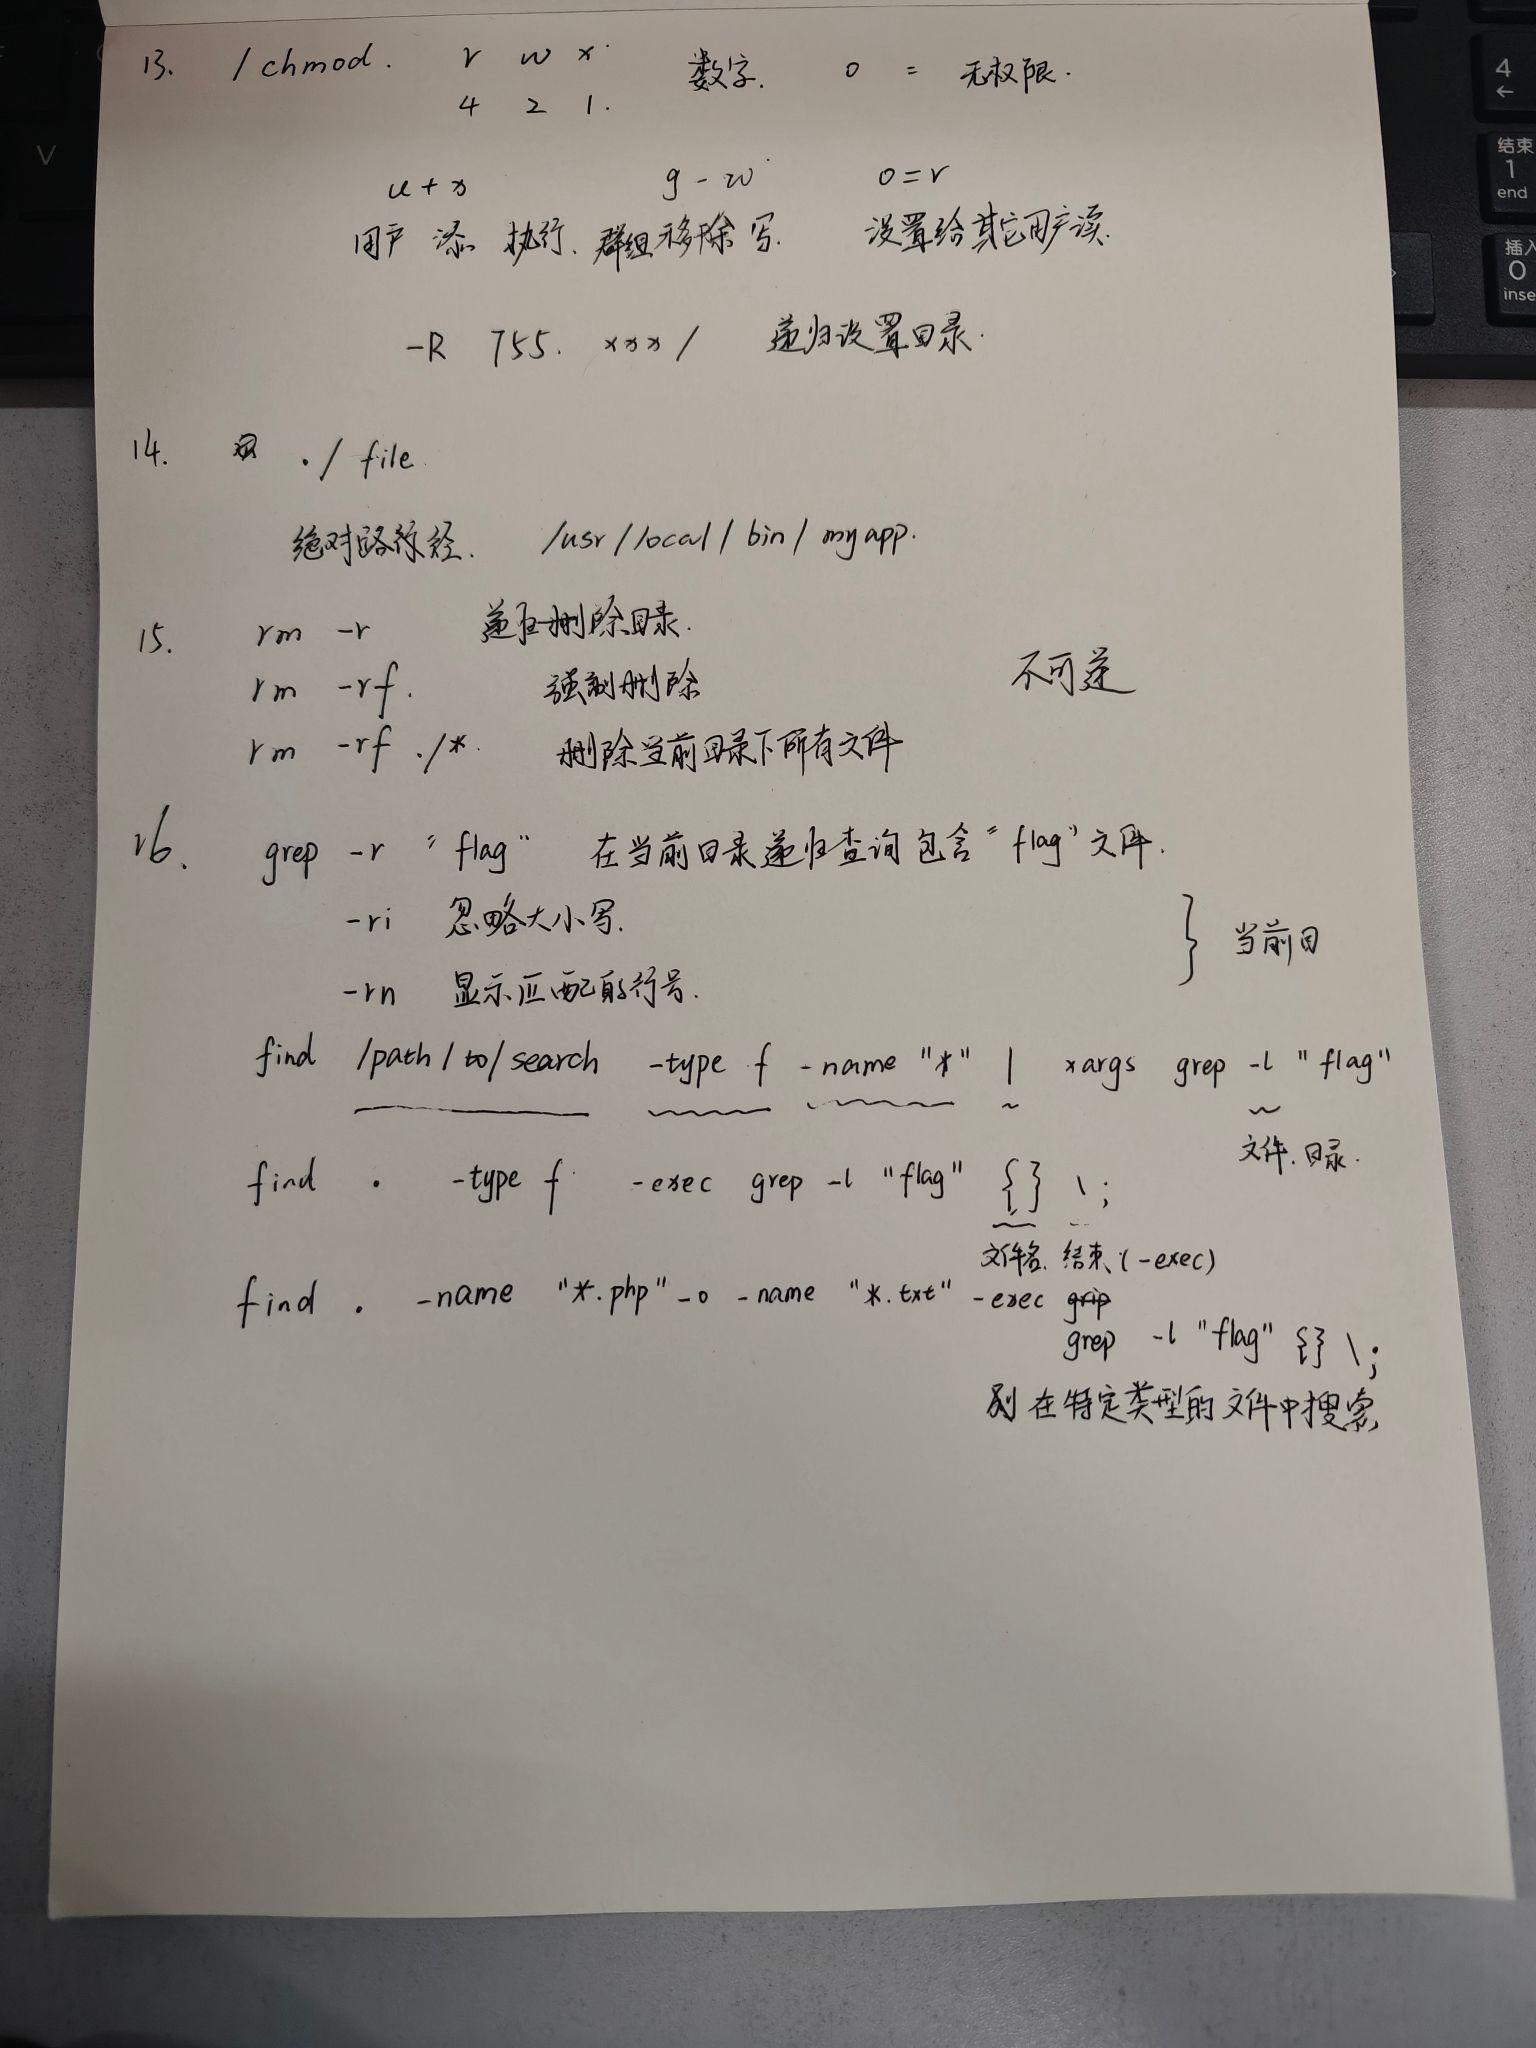 13. /chmod. r w x 数字. 0 = 无权限.
4 2 1.
u+x g-w o=r
用户 添 执行. 群组移除写. 设置给其它用户读.
-R 755. xxx/ 递归设置目录.
14. ./file
绝对路径. /usr/local/bin/myapp.
15. rm -r 递归删除目录.
rm -rf. 强制删除 不可逆
rm -rf ./* 删除当前目录下所有文件
16. grep -r "flag" 在当前目录递归查询包含"flag"文件.
-ri 忽略大小写.
} 当前目
-rn 显示匹配的行号.
find /path/to/search -type f -name "*" | xargs grep -l "flag"
文件.目录.
find . -type f -exec grep -l "flag" {} \;
文件名. 结束(-exec)
find . -name "*.php" -o -name "*.txt" -exec grip
grep -l "flag" {} \;
在特定类型的文件中搜索
4
←
结束
1
end
插入
0
inse
V